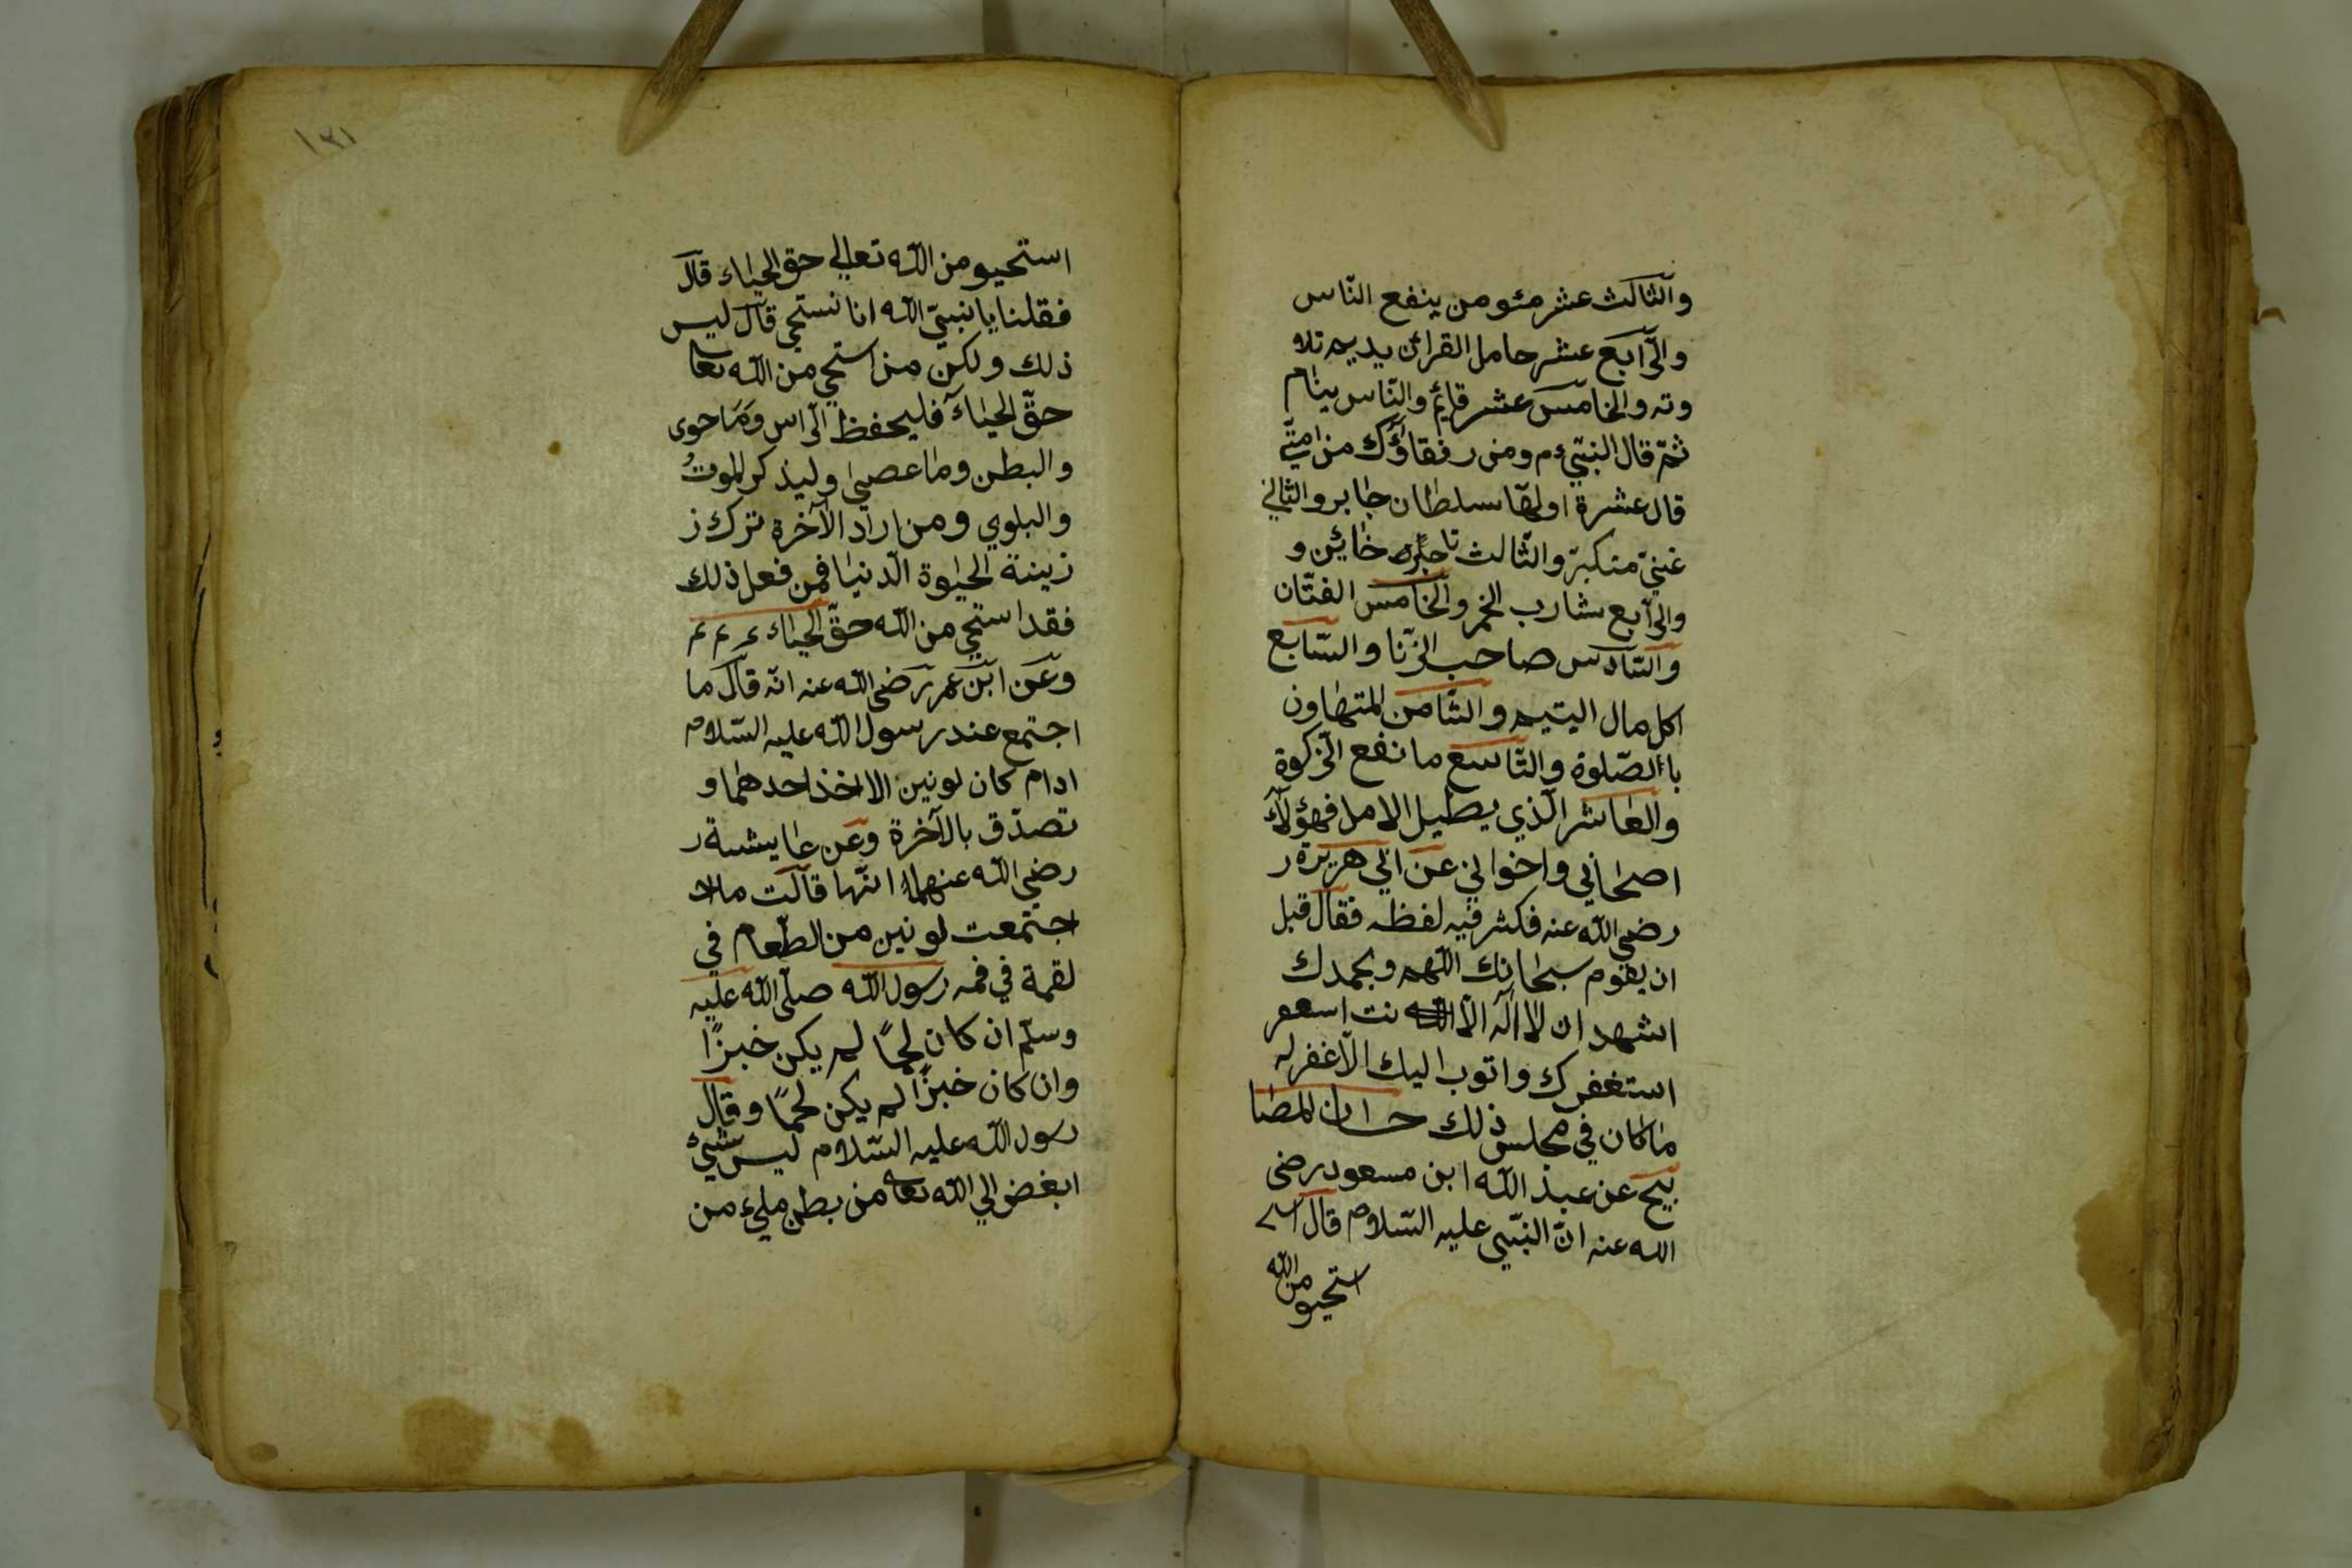 والثالث عشر مئومن ينفع النّاس
والرّابع عشر حامل القرائن يديم تلا
وته والخامس عشر قايم والنّاس ينام
ثمّ قال النبّيء م ومن رفقاؤك من امتي
قال عشرة اولها سلطان جابر والثاني
غنيّ متكبّر والثّالث تاجر خاين و
والرّابع شارب الخمر والخامس الفتّان
والسّادس صاحب الزّنا والسّابع
اكل مال اليتيم والثّامن المتهاون
باالصّلوة والتّاسع مانفع الزّكوة
والعاشر الّذي يطيل الامل فهؤلآء
اصحابي واخواني عن ابي هريرة ر
رضي اللّه عنه فكثر فيه لفظه فقال قبل
ان يقوم سبحانك اللّهم وبحمدك
اشهد ان لا اله الّا نت
استغفرك واتوب اليك الّا غفر له
ماكان في مجلس ذلك حسان المصا
بيح عن عبد اللّه ابن مسعود رضى
اللّه عنه انّ النبّي عليه السّلام قال
استحيو من اللّه
١٣١
استحيو من اللّه تعالي حق الحياء قال
فقلنا يا نبيّ اللّه انا نستحي قال ليس
ذلك ولكن من استحي من اللّه تعا
حقّ الحياء فليحفظ الرّاس وما حوى
والبطن وما عصى وليذكر الموت
والبلوي ومن اراد الآخرة ترك ز
زينة الحيوة الدّنيا فمن فعل ذلك
فقد استحي من اللّه حقّ الحياء م م م
وعن ابن عمر رضي اللّه عنه انّه قال ما
اجتمع عند رسول اللّه عليه السّلام
ادام كان لونين الا اخذ احدهما و
تصدّق بالآخرة وعن عايشة ر
رضي اللّه عنهما انّها قالت ما لا
اجتمعت لونين من الطّعام في
لقمة في فمه رسول اللّه صلّى اللّه عليه
وسلّم ان كان لحمًا لم يكن خبزًا
وان كان خبزًا لم يكن لحمًا وقال
رسول اللّه عليه السّلام ليس شيئ
ابغض الي اللّه تعا من بطن مليء من